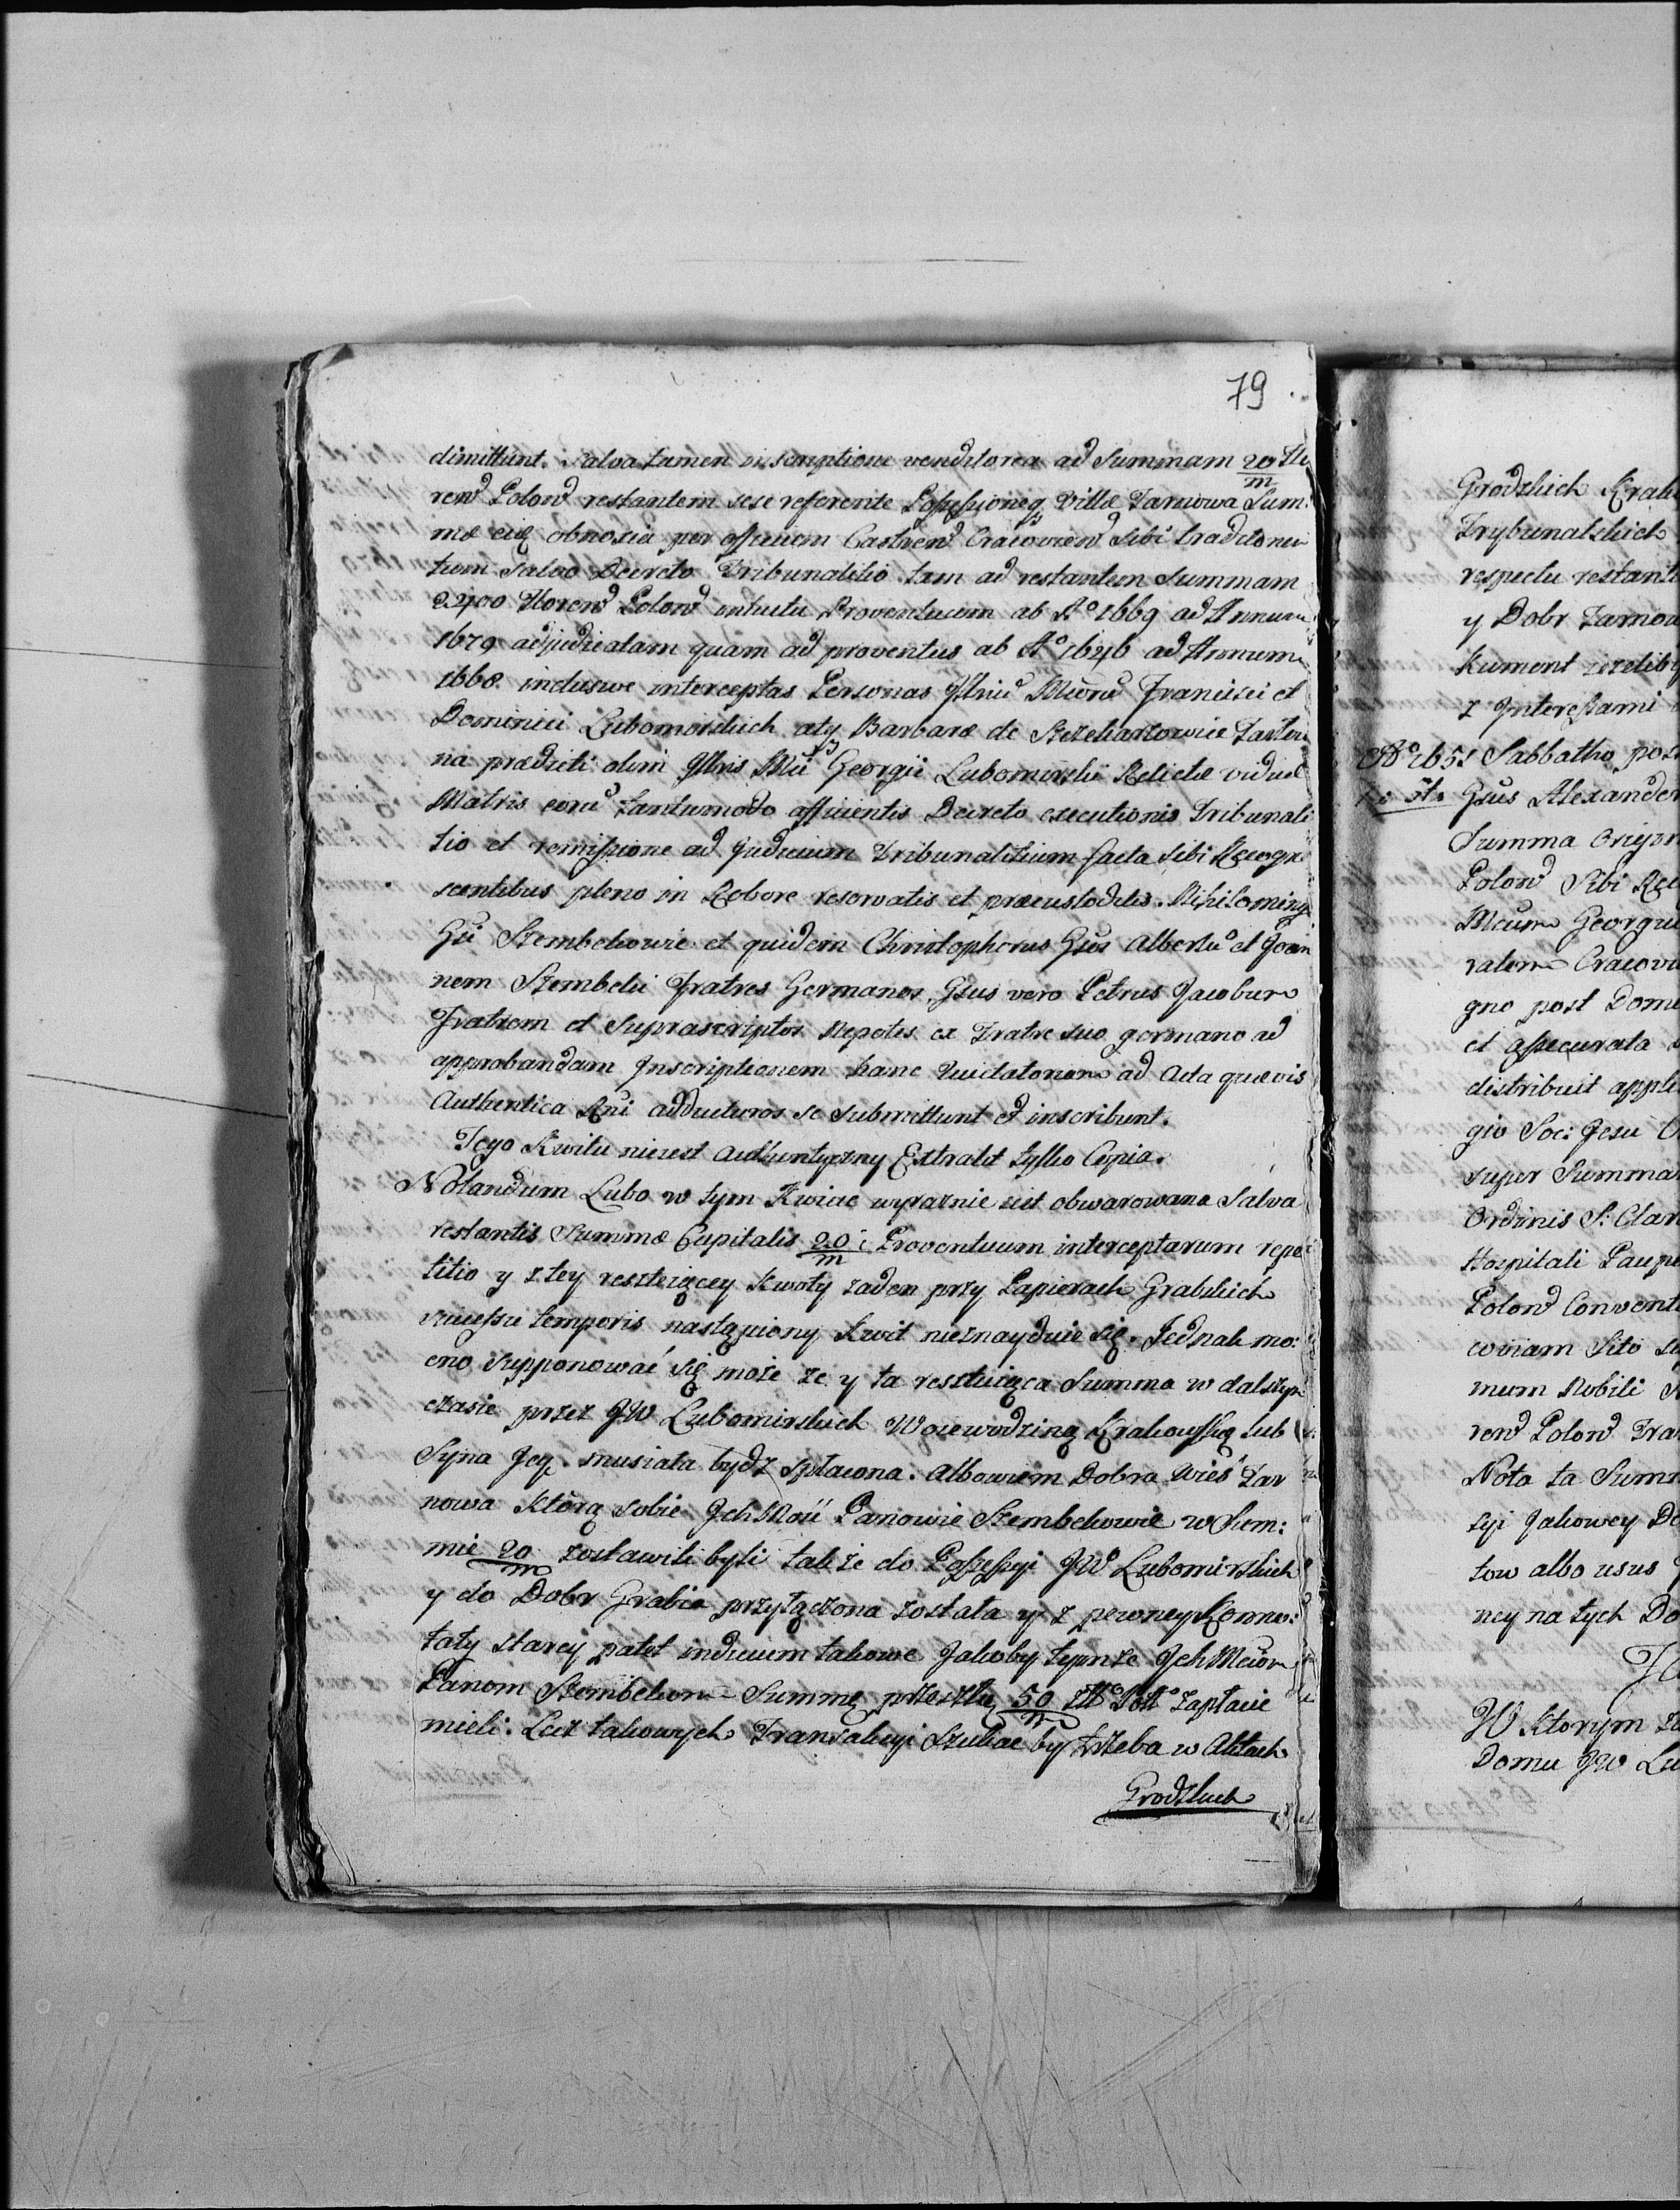 79
dimittunt. Salva tamen inscriptione venditorea ad Summam 20/m Flo
renˀ Polonˀ restantem sese referente Possessioneqꝫ Villæ Tarnowa Sum
mæ eiꝗ obnoxiæ per officium Castrenˀ Cracovienˀ Sibi traditonis
tum Salvo Decreto Tribunalitio tam ad restantem Summam
2400 Florenˀ Polonˀ intuitu Proventuum ab Aº 1669 ad Annum
1679 adjudicatam quam ad proventus ab Aº 1646 ad Annum
1668 inclusive interceptas Personas Jllriuˀ Mcorˀ Francisci et
Dominici Lubomirskich atqꝫ Barbaræ de
na prædicti olim Jllris Mci Georgii Lubomirskii Relictæ viduæ
Matris eoruˀ tantumodo afficientis Decreto executionis Tribunali
tio et remissione ad Judicium Tribunalitium facta Sibi Recogno
scentibus pleno in Robore reservatis et præcustoditis. Nihilominꝗ
Gsi Szembekowie et quidem Christophorus Gsus Albertuˀ et Joan
nem Szembeki Fratres Germanos, Gsus vero Petrus Jacobum
Fratrem et Suprascriptos Nepotes ex Fratre suo germano ad
approbandam Jnscriptionem hanc Quietatoriam ad Acta quævis
Authentica Rni adducturos se submittunt et inscribunt.
Tego Kwitu nieiest Authentyczny Extrakt tylko Copia.
Notandum Lubo w tym Kwicie wyraznie iest obwarowana Salva
restantis Summæ Capitalis 20/m i Proventuum interceptarum repe
titio y z tey reszteiącey kwoty żaden przy Papierach Grabskich
successu temporis nastąpiony kwit nieznayduie się. Jednak mo:
cno supponować się może że y ta resztuiąca Summa w dalszym
czasie przez JW Lubomirskich Woiewodzinę Krakowską lub
Syna Jey. musiała bydź spłacona. Albowiem Dobra Wieś Tar
nowa którą sobie Jch Mość Panowie Szembekowie w Sum:
mie 20/m zostawili byli także do Possessyi JW Lubomirskich
y do Dobr Grabie przyłączona została y z pewney Konno:
taty starey patet indicium takowe Jakoby tymże Jch Mciom
Panom Szembekom Summę przeszłą 50/m złº Polº zapłacić
mieli. Lecz takowych Transakcyi szukać by trzeba w Aktach
Grodzkich
Grodzkich Krak
Trybunalskich
respectu restant
y Dobr Tarnow
kument
z Jnteressami
Aº 1651 Sabbatho post
Gsus Alexander
Summa
Polonˀ Sibi Rec
Mcum Georgiu
ralem Cracovi
gno post Dome
et assecurata
distribuit appli
gio Soc: Jesu
super Summa
Ordinis S: Clar
Hospitali Paupe
Polonˀ Convent
coviam Sito
mum Nobili
renˀ Polonˀ Tra
Nota ta Summ
syi Jakowey Do
tow albo usus
ney na tych Do
W Ktorym
Domu JW Lu